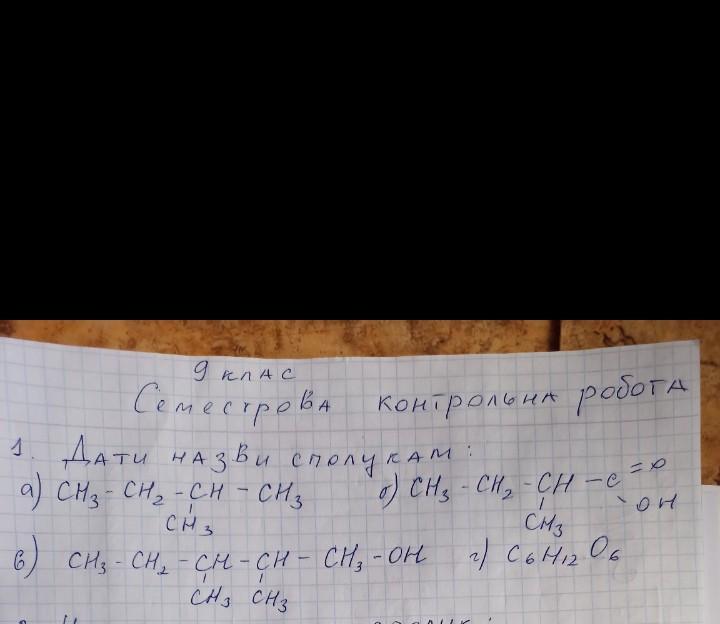 9 клас
Семестрова контрольна робота
1. Дати назви сполукам:
а) CH₃ - CH₂ - CH - CH₃ б) CH₃ - CH₂ - CH - C =O
CH₃ CH₃ OH
в) CH₃ - CH₂ - CH - CH - CH₃ - OH г) C₆H₁₂O₆
CH₃ CH₃